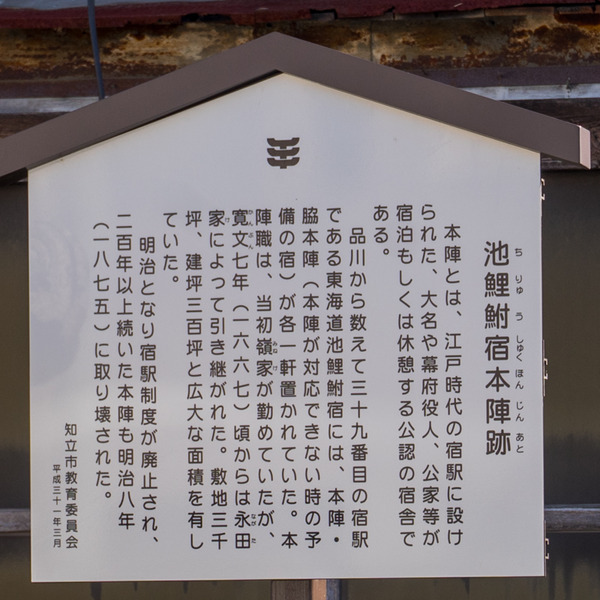 池鯉鮒宿本陣跡
ちりゅうしゅくほんじんあと
本陣とは、江戸時代の宿駅に設け
られた、大名や幕府役人、公家等が
宿泊もしくは休憩する公認の宿舎で
ある。
品川から数えて三十九番目の宿駅
である東海道池鯉鮒宿には、本陣・
脇本陣（本陣が対応できない時の予
備の宿）が各一軒置かれていた。本
陣職は、当初嶺家が勤めていたが、
みねけ
寛文七年（一六六七）頃からは永田
かんぶん
ながた
家によって引き継がれた。敷地三千
け
坪、建坪三百坪と広大な面積を有し
ていた。
明治となり宿駅制度が廃止され、
二百年以上続いた本陣も明治八年
（一八七五）に取り壊された。
知立市教育委員会
平成三十一年三月